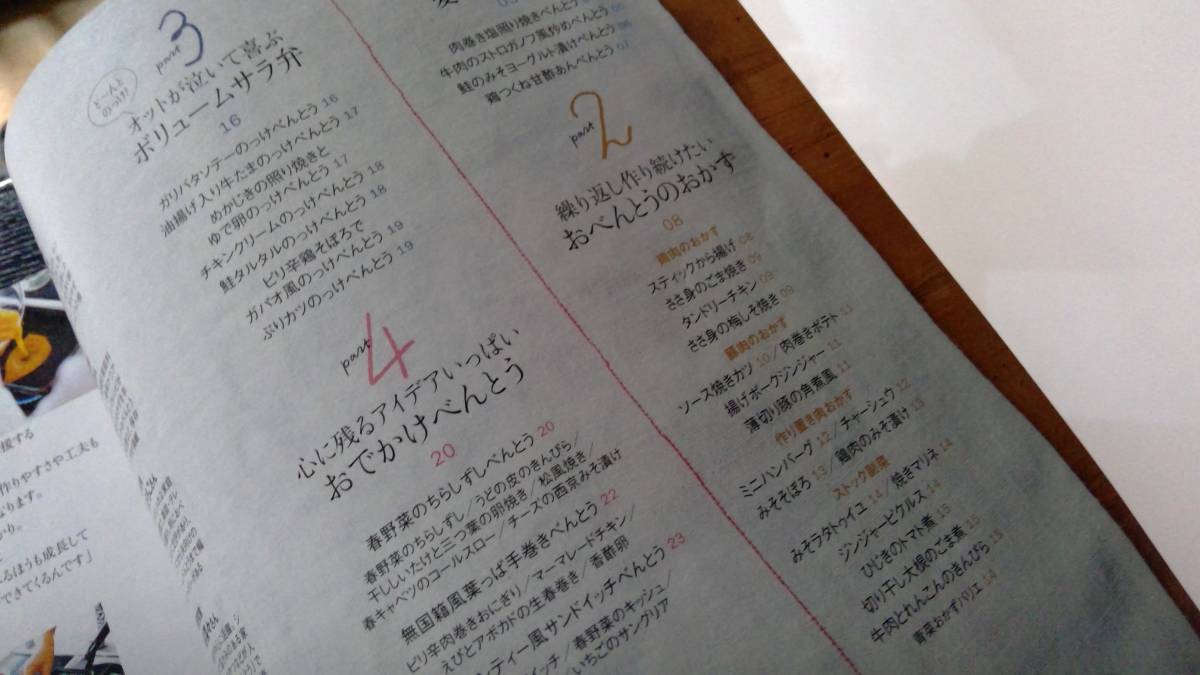 肉巻き塩照り焼きべんとう 05
牛肉のストロガノフ風炒めべんとう 06
鮭のみそヨーグルト漬けべんとう
鶏つくね甘酢あんべんとう 07
part 2
繰り返し作り続けたい
おべんとうのおかず
08
鶏肉のおかず
スティックから揚げ 08
ささ身のごま焼き 09
タンドリーチキン 09
ささ身の梅しそ焼き 09
豚肉のおかず
ソース焼きカツ 10/肉巻きポテト 11
揚げポークジンジャー 11
薄切り豚の角煮風 11
作り置き肉おかず
ミニハンバーグ 12/チャーシュウ 12
みそそぼろ 13/鶏肉のみそ漬け 13
ストック副菜
みそラタトゥイユ 14/焼きマリネ 14
ジンジャーピクルス 14
ひじきのトマト煮 15
切り干し大根のごま煮 15
牛肉とれんこんのきんぴら 15
青菜おかずバリエ 14
part 3
どーんと
のっけ!
オットが泣いて喜ぶ
ボリュームサラ弁
16
ガリバタソテーのっけべんとう 16
油揚げ入り牛たまのっけべんとう 17
めかじきの照り焼きと
ゆで卵のっけべんとう 17
チキンクリームのっけべんとう 18
鮭タルタルのっけべんとう 18
ピリ辛鶏そぼろで
ガパオ風のっけべんとう 19
ぶりカツのっけべんとう 19
part 4
心に残るアイデアいっぱい
おでかけべんとう
20
春野菜のちらしずしべんとう 20
春野菜のちらしずし/うどの皮のきんぴら/
干ししいたけと三つ葉の卵焼き/松風焼き/
春キャベツのコールスロー/チーズの西京みそ漬け
無国籍風葉っぱ手巻きべんとう 22
ピリ辛肉巻きおにぎり/マーマレードチキン/
えびとアボカドの生春巻き/香酢卵
ンティー風サンドイッチべんとう 23
イッチ/春野菜のキッシュ/
/いちごのサングリア
援する
作りやすさや工夫も
なります。
かり。
るほうも成長して
できてくるんです」